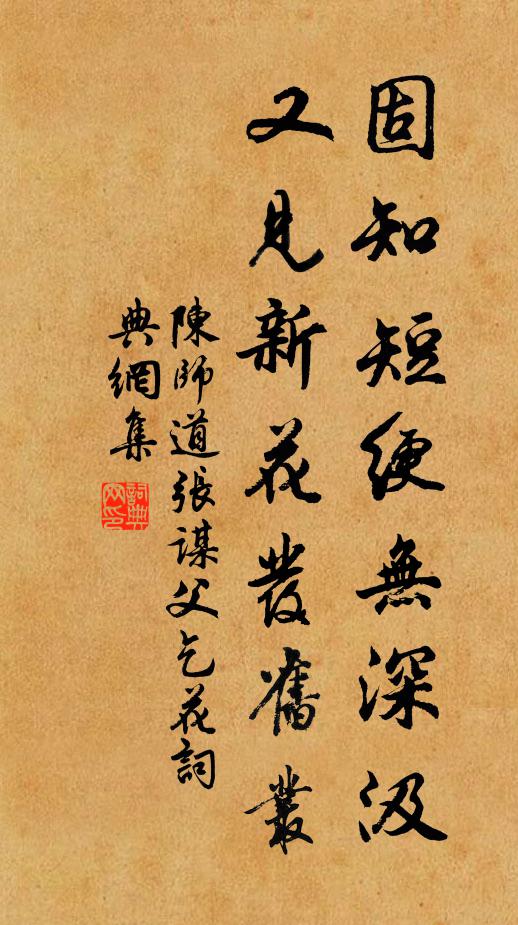 固知短綆無深汲
又見新花發舊叢
陳師道張謀父乞花詞
典網集
詞典
网印